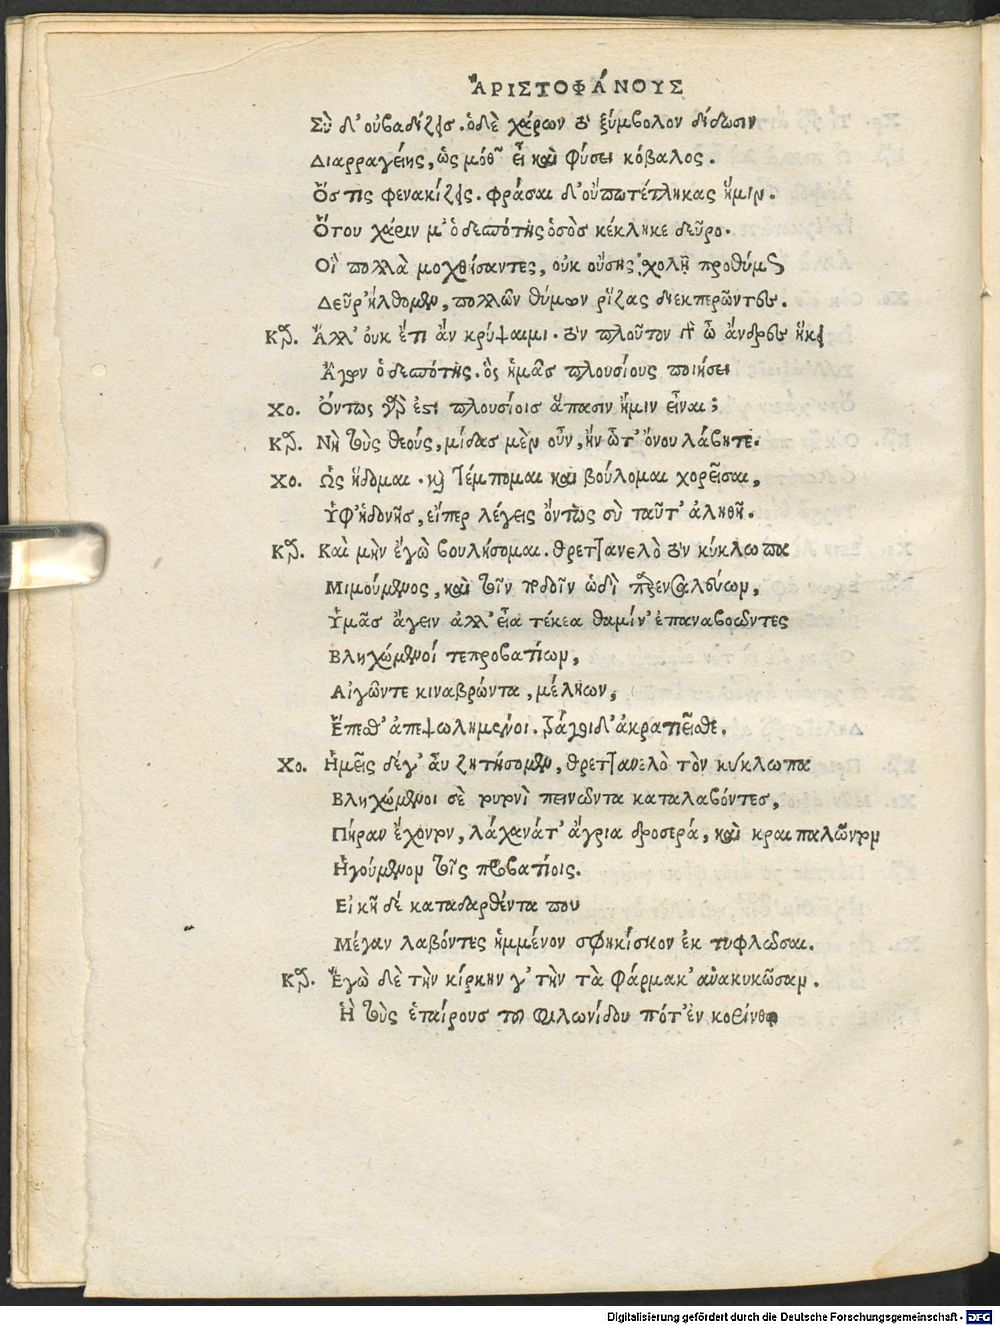 ἈΡΙΣΤΟΦΆΝΟΥΣ
Σὺ δ' οὐ βαδίζεις. ὁ δὲ χάρων τὸ ξύμβολον δίδωσιν
Διαρραγείης, ὡς μόθων εἶ καὶ φύσει κόβαλος.
Ὅς τις φενακίζεις. φράσαι δ' οὔπω τέτληκας ἥμιν.
Ὅτου χάριν μ' ὁ δεσπότης ὁ σὸς κέκληκε δεῦρο.
Οἳ πολλὰ μοχθήσαντες, οὐκ οὔσης σχολῆς προθύμως
Δεῦρ' ἤλθομεν, πολλῶν θύμων ῥίζας διεκπερῶντες.
Κρ. Ἀλλ' οὐκ ἔτι ἂν κρύψαιμι. τὸν πλοῦτον γὰρ ὦ ἄνδρες ἥκει
Ἄγων ὁ δεσπότης. ὃς ἡμᾶς πλουσίους ποιήσει
Χο. Ὄντως γὰρ ἐστι πλουσίοις ἅπασιν ἥμιν εἶναι;
Κρ. Νὴ τοὺς θεούς, μίδας μὲν οὖν, ἢν ὦτ' ὄνου λάβητε.
Χο. Ὡς ἥδομαι. καὶ τέρπομαι καὶ βούλομαι χορεῦσαι,
Ὑφ' ἡδονῆς, εἴπερ λέγεις ὄντως σὺ ταῦτ' ἀληθῆ.
Κρ. Καὶ μὴν ἐγὼ βουλήσομαι. θρεττανελὸ τὸν κύκλωπα
Μιμούμενος, καὶ τοῖν ποδοῖν ὡδὶ παρενσαλεύων,
Ὑμᾶς ἄγειν ἀλλ' εἶα τέκεα θαμίν' ἐπαναβοῶντες
Βληχώμενοί τε προβατίων,
Αἰγῶν τε κιναβρώντα, μέλη ων,
Ἕπεσθ' ἀπεψωλημένοι. τράγοι δ' ἀκρατιεῖσθε.
Χο. Ἡμεῖς δέ γ' ἂν ζητήσομεν, θρεττανελὸ τὸν κύκλωπα
Βληχώμενοι σὲ τυτονὶ πεινῶντα καταλαβόντες,
Πήραν ἔχοντα, λάχανά τ' ἄγρια δροσερά, καὶ κραιπαλῶντα
Ἡγούμενον τοῖς προβατίοις.
Εἰκῆ δέ καταδαρθέντα που
Μέγαν λαβόντες ἡμμένον σφηκίσκον ἐκτυφλῶσαι.
Κρ. Ἐγὼ δὲ τὴν κίρκην γ' τὴν τὰ φάρμακ' ἀνακυκῶσαν.
Ἣ τοὺς ἑταίρους τοῦ φιλωνίδου πότ' ἐν κορίνθῳ
Digitalisierung gefördert durch die Deutsche Forschungsgemeinschaft - DFG